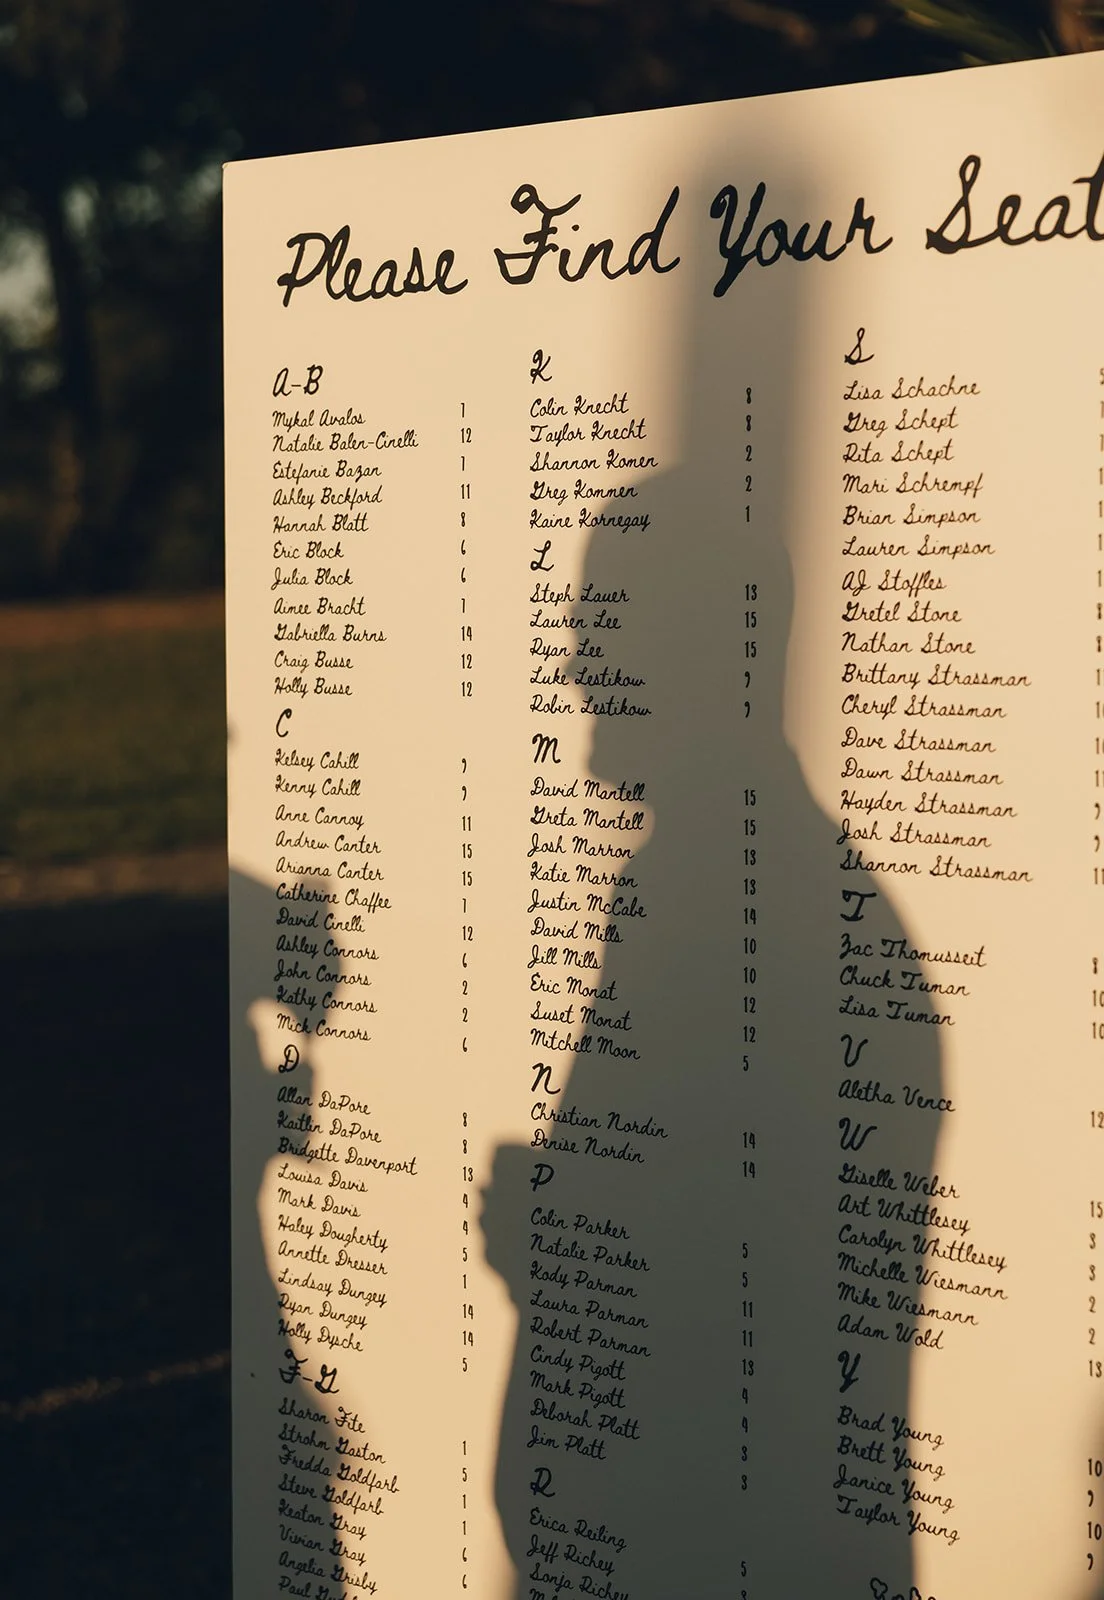 Please Find Your Seat
A-B
Mykal Avalos 7
Natalie Balen-Cinelli 12
Estefanie Bazan 7
Ashley Beckford 11
Hannah Blatt 8
Eric Block 6
Julia Block 6
Aimee Bracht 7
Gabriella Burns 14
Craig Busse 12
Holly Busse 12
C
Kelsey Cahill 9
Kenny Cahill 9
Anne Cannoy 11
Andrew Canter 15
Arianna Canter 15
Catherine Chaffee 7
David Cinelli 12
Ashley Connors 6
John Connors 2
Kathy Connors 2
Mick Connors 6
D
Allan DaPore 8
Kaitlin DaPore 8
Bridgette Davenport 13
Louisa Davis 4
Mark Davis 4
Haley Dougherty 5
Annette Dresser 1
Lindsay Dungey 14
Ryan Dungey 14
Holly Dysche 5
F-G
Sharon Fite 1
Strohm Gaston 5
Fredda Goldfarb 1
Steve Goldfarb 1
Keaton Gray 6
Vivian Gray 6
Angelia Grisby
Paul
K
Colin Knecht 8
Taylor Knecht 8
Shannon Komen 2
Greg Kommen 2
Kaine Kornegay 1
L
Steph Lauer 13
Lauren Lee 15
Ryan Lee 15
Luke Lestikow 9
Robin Lestikow 9
M
David Mantell 15
Greta Mantell 15
Josh Marron 13
Katie Marron 13
Justin McCabe 14
David Mills 10
Jill Mills 10
Eric Monat 12
Suset Monat 12
Mitchell Moon 5
N
Christian Nordin 14
Denise Nordin 14
P
Colin Parker 5
Natalie Parker 5
Kody Parman 11
Laura Parman 11
Robert Parman 13
Cindy Pigott 4
Mark Pigott 4
Deborah Platt 3
Jim Platt 3
R
Erica Reiling 5
Jeff Richey 3
Sonja Richey
S
Lisa Schachne
Greg Schept
Rita Schept
Mari Schrempf
Brian Simpson
Lauren Simpson
AJ Stoffles
Gretel Stone
Nathan Stone
Brittany Strassman
Cheryl Strassman
Dave Strassman
Dawn Strassman
Hayden Strassman
Josh Strassman
Shannon Strassman
T
Zac Thomusseit 8
Chuck Tuman 10
Lisa Tuman 10
V
Aletha Vence 12
W
Giselle Weber 15
Art Whittlesey 3
Carolyn Whittlesey 3
Michelle Wiesmann 2
Mike Wiesmann 2
Adam Wold 13
Y
Brad Young 10
Brett Young 9
Janice Young 10
Taylor Young 9